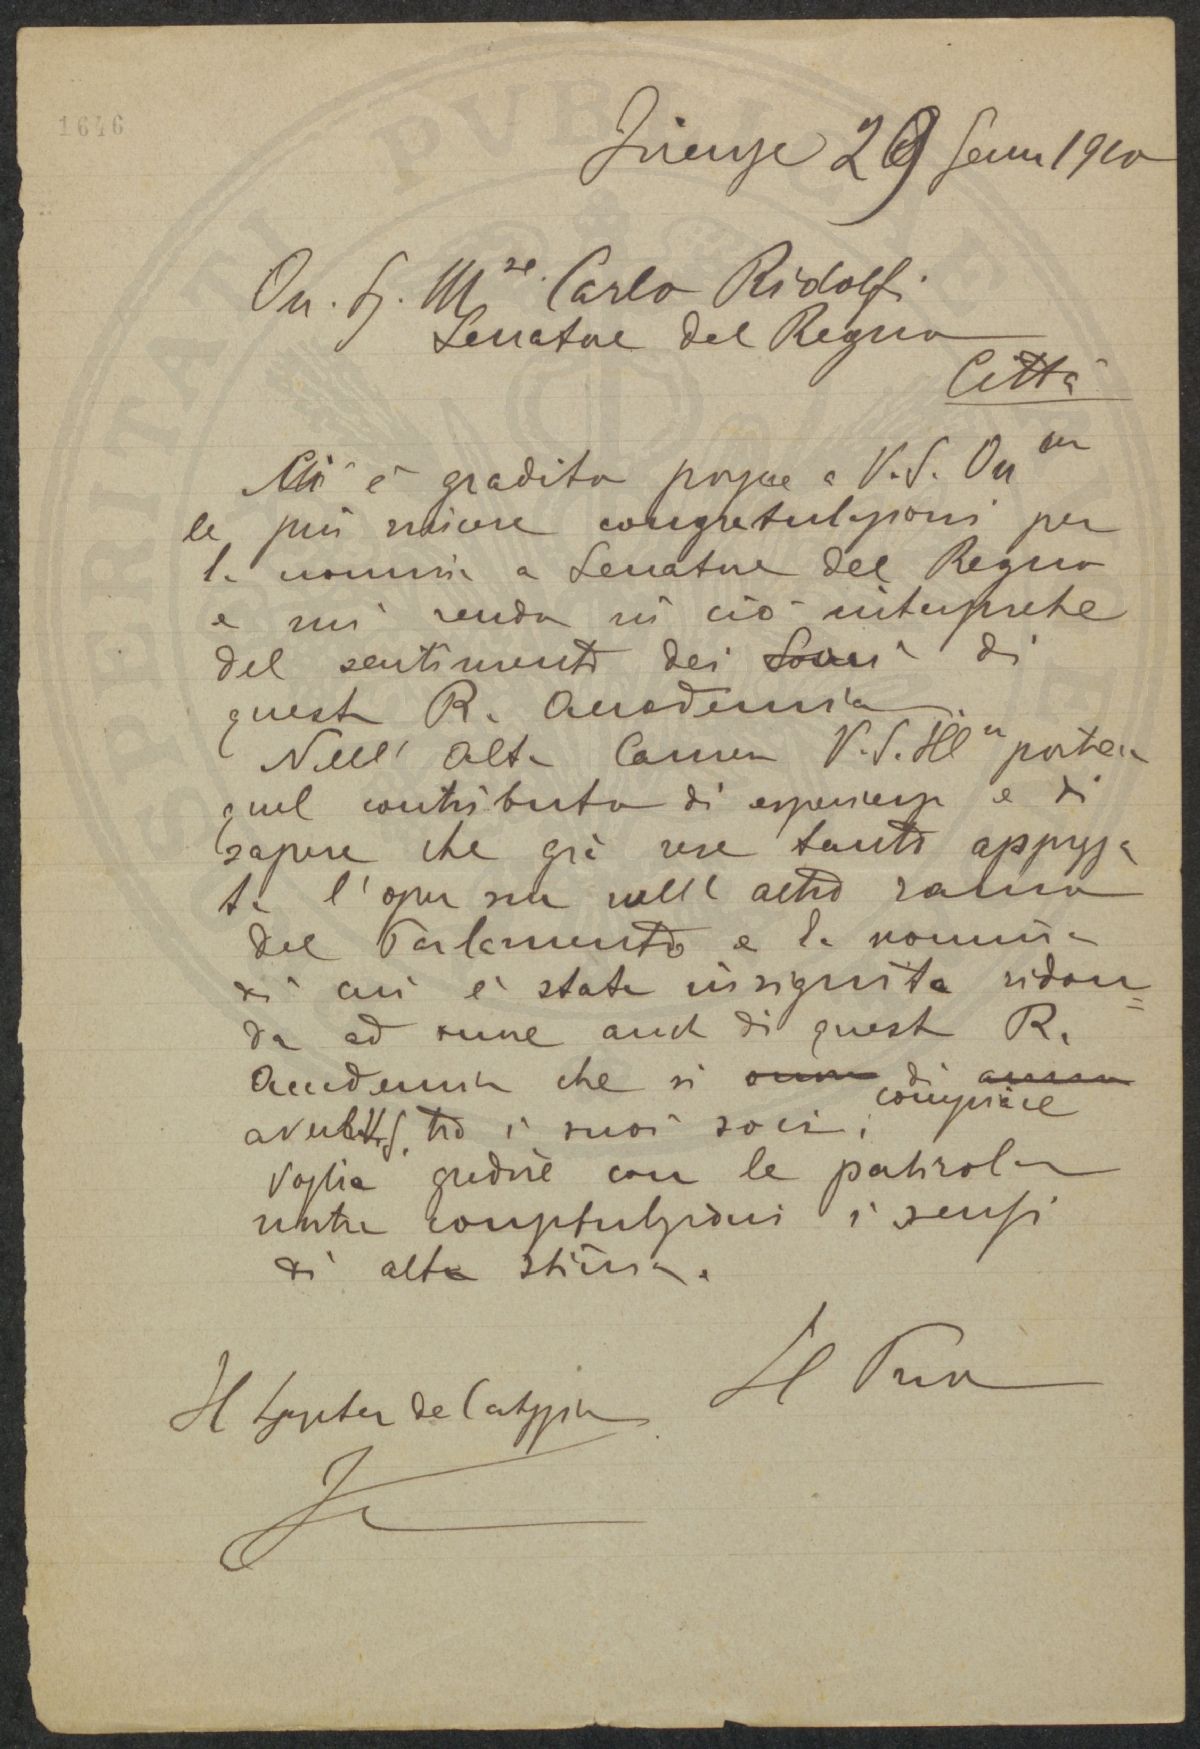 1646
Firenze 29 Genn 1910
On. S. M.se Carlo Ridolfi
Senatore del Regno
Città
Mi è gradito porgere a V.S. On
le più sincere congratulazioni per
la nomina a Senatore del Regno
e mi rendo in ciò interprete
del sentimento dei Soci di
questa R. Accademia.
Nell' Alta Camera V.S. Ill porterà
quel contributo di esperienza e di
sapere che già rese tanto apprezza
ta l'opera sua nell' altro ramo
del Parlamento e la nomina
di cui è stata insignita ridon=
da ad onore anche di questa R.
Accademia che si onora di
compiace
averla tra i suoi soci.
Voglia gradire con le
congratulazioni i sensi
di alta stima.
Il Pres
Il